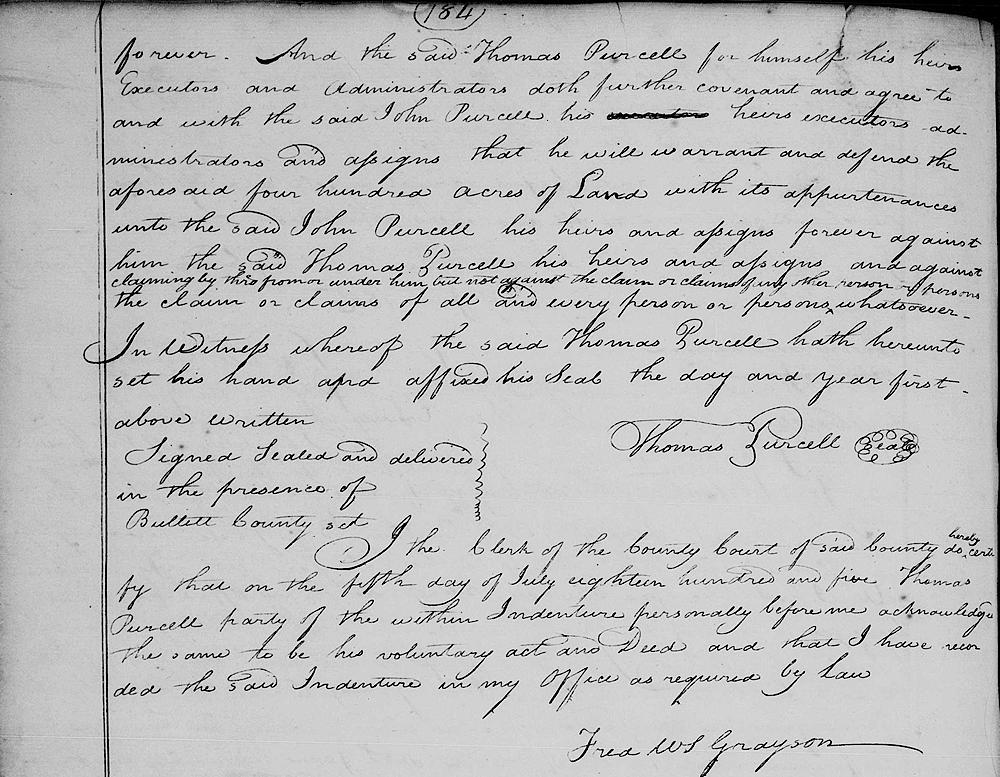 (184)
forever. And the said Thomas Purcell for himself his heirs
Executors and Administrators doth further covenant and agree to
and with the said John Purcell his executors heirs executors ad-
ministrators and assigns that he will warrant and defend the
aforesaid four hundred acres of Land with its appurtenances
unto the said John Purcell his heirs and assigns forever against
him the said Thomas Purcell his heirs and assigns and against
claiming by thro from or under him but not against the claim or claims of any other person or persons
the claim or claims of all and every person or persons ^ whatsoever-
In Witness whereof the said Thomas Purcell hath hereunto
set his hand and affixed his Seal the day and year first-
above written
Thomas Purcell Seal
Signed Sealed and delivered
in the presence of
Bullett County sct
hereby
I the Clerk of the County Court of said County do ^ certi
fy that on the fifth day of July eighteen hundred and five Thomas
Purcell party of the within Indenture personally before me acknowledge
the same to be his voluntary act and Deed and that I have recor
ded the said Indenture in my Office as required by Law
Fred WS Grayson